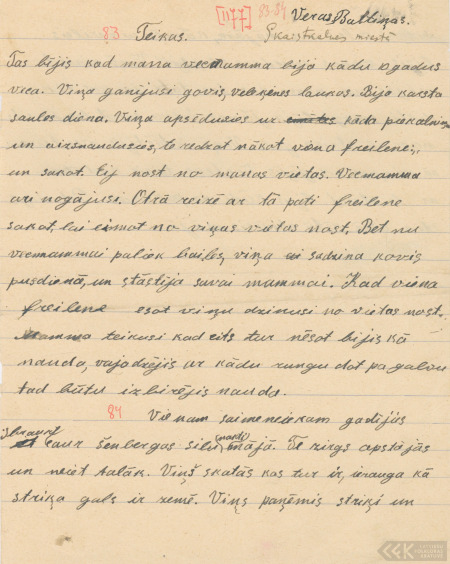 [1177] 83-84 Veras Baltiņas.
83 Teikas. Skaistkalnes miestā
Tas bijis kad mana vecmamma bija kādu 10 gadus
veca. Viņa ganījusi govis, velēnes laukos. Bija karsta
saules diena. Viņa apsēdusies uz kāda piekalniņa
un aizsnaudusies, te redzot nākot viena freilene,
un sakot. Ej nost no manas vietas. Vecmamma
arī nogājusi. Otrā reizē ar tā pati freilene
sakot, lai eimot no viņas vietas nost, Bet nu
vecmammai paliek bailes, viņa sadzina govis
pusdienā, un stāstīja savai mammai. Kad viena
freilene esot viņu dzinusi no vietas nost.
Mamma teikusi kad cits tur nēsot bijis kā
nauda, vajadzējis ar kādu rungu dot pa galvu
tad būtu izbirējis nauda.
84 Vienam saimeneiekam gadījās
izbraukt caur šenbergas silu (nakti) mājā. Te zirgs apstājās
un neiet tālāk. Viņš skatās kas tur ir, ierauga kā
striķa gals ir zemē. Viņš paņēmis striķi un
LATVIEŠU FOLKLORAS KRĀTUVE